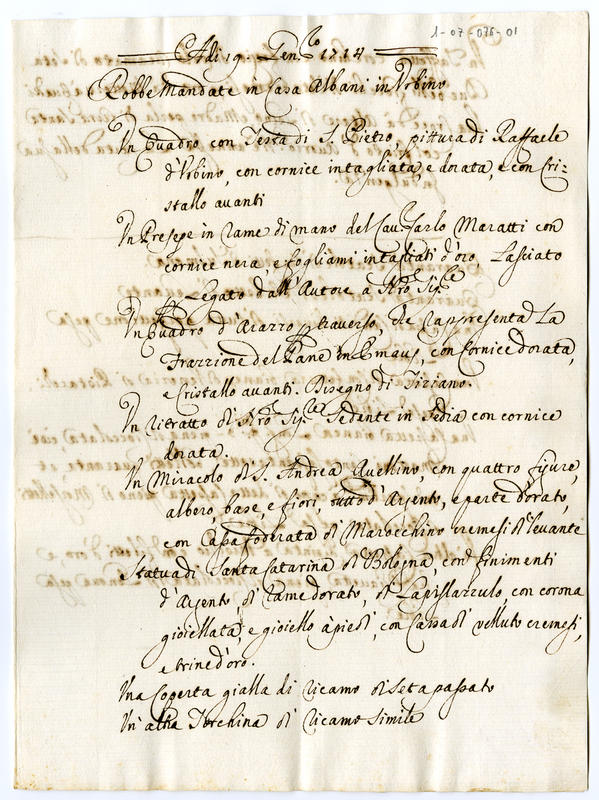 1-07-076-01
Adi 19. Gen.ro 1714
Robbe Mandate in Casa Albani in Urbino
Un Quadro con Testa di S. Pietro, pittura di Raffaele
d'Urbino, con cornice intagliata, e dorata, e con Cri-
stallo avanti
Un Presepe in rame di mano del Cav. Carlo Maratti con
cornice nera, e fogliami intagliati d'oro, Lasciato
Legato dall'Autore a Nro Sig.re
Un Quadro d'Arazzo p traverso, che rappresenta La
Frazzione del Pane in Emaus, con Cornice dorata,
e Cristallo avanti. Disegno di Tiziano.
Un ritratto di Nro Sig.re Sedente in Sedia con cornice
dorata.
Un Miracolo di S. Andrea Avellino, con quattro figure,
albero, base, e fiori, tutto d'Argento, e parte dorato,
con Cassa foderata di Marocchino cremesi di levante
Statua di Santa Catarina di Bologna, con finimenti
d'Argento, di rame dorato, di Lapislazzulo, con corona
gioiellata, e gioiello à piedi, con Cassa di velluto cremesi,
e trine d'oro.
Una Coperta gialla di ricamo di seta passato
Un'altra Torchina di ricamo simile